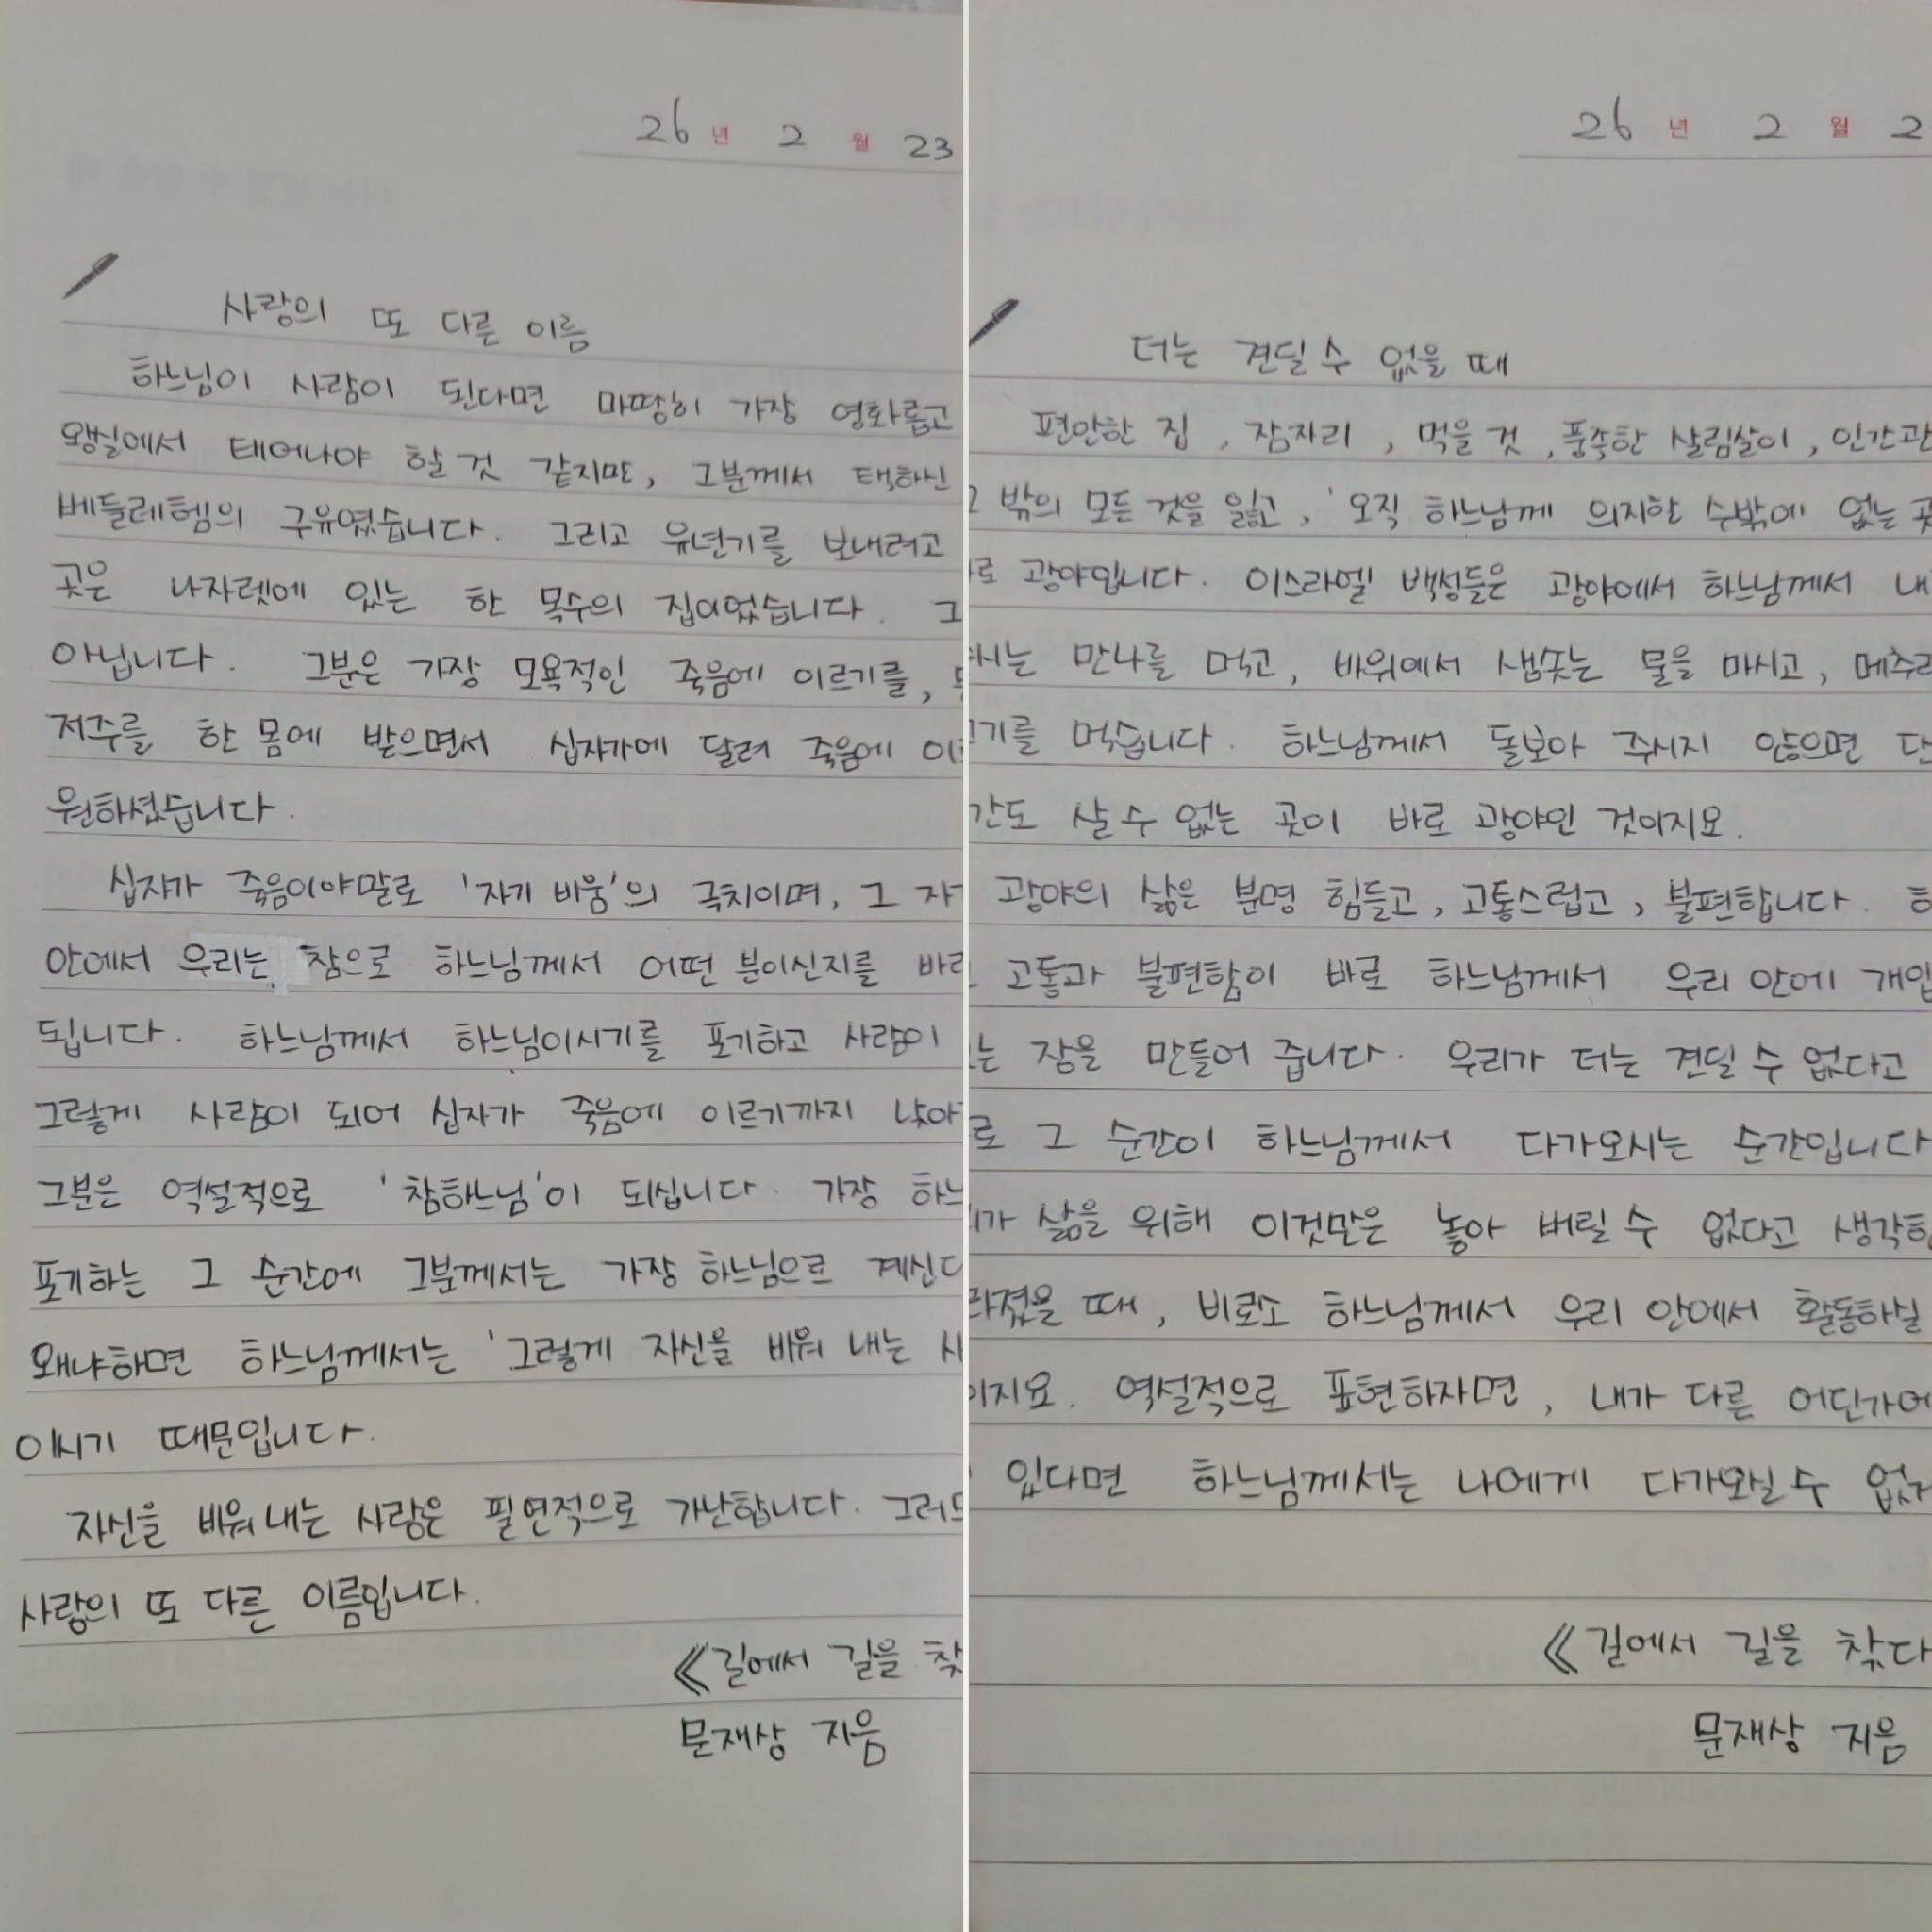 26 년 2 월 23
사랑의 또 다른 이름
하느님이 사람이 된다면 마땅히 가장 영화롭고
왕실에서 태어나야 할 것 같지만, 그분께서 택하신
베들레헴의 구유였습니다. 그리고 유년기를 보내려고
곳은 나자렛에 있는 한 목수의 집이었습니다. 그
아닙니다. 그분은 가장 모욕적인 죽음에 이르기를,
저주를 한 몸에 받으면서 십자가에 달려 죽음에
원하셨습니다.
십자가 죽음이야말로 '자기 비움'의 극치이며, 그
안에서 우리는 참으로 하느님께서 어떤 분이신지를
됩니다. 하느님께서 하느님이시기를 포기하고 사람이
그렇게 사람이 되어 십자가 죽음에 이르기까지 낮아
그분은 역설적으로 '참하느님'이 되십니다. 가장 하느
포기하는 그 순간에 그분께서는 가장 하느님으로 계신
왜냐하면 하느님께서는 '그렇게 자신을 비워 내는
이시기 때문입니다.
자신을 비워 내는 사랑은 필연적으로 가난합니다. 그러
사랑의 또 다른 이름입니다.
《길에서 길을 찾
문재상 지음
26 년 2 월 2
더는 견딜 수 없을 때
편안한 집, 잠자리, 먹을 것, 풍족한 살림살이, 인간관
밖의 모든 것을 잃고, '오직 하느님께 의지할 수밖에 없는
로 광야입니다. 이스라엘 백성들은 광야에서 하느님께서 내
시는 만나를 먹고, 바위에서 샘솟는 물을 마시고, 메추라
기를 먹습니다. 하느님께서 돌보아 주시지 않으면 단
간도 살 수 없는 곳이 바로 광야인 것이지요.
광야의 삶은 분명 힘들고, 고통스럽고, 불편합니다.
고통과 불편함이 바로 하느님께서 우리 안에 개입
는 장을 만들어 줍니다. 우리가 더는 견딜 수 없다고
로 그 순간이 하느님께서 다가오시는 순간입니다
가 삶을 위해 이것만은 놓아 버릴 수 없다고 생각
라졌을 때, 비로소 하느님께서 우리 안에서 활동하실
이지요. 역설적으로 표현하자면, 내가 다른 어딘가에
있다면 하느님께서는 나에게 다가오실 수 없
《길에서 길을 찾다
문재상 지음